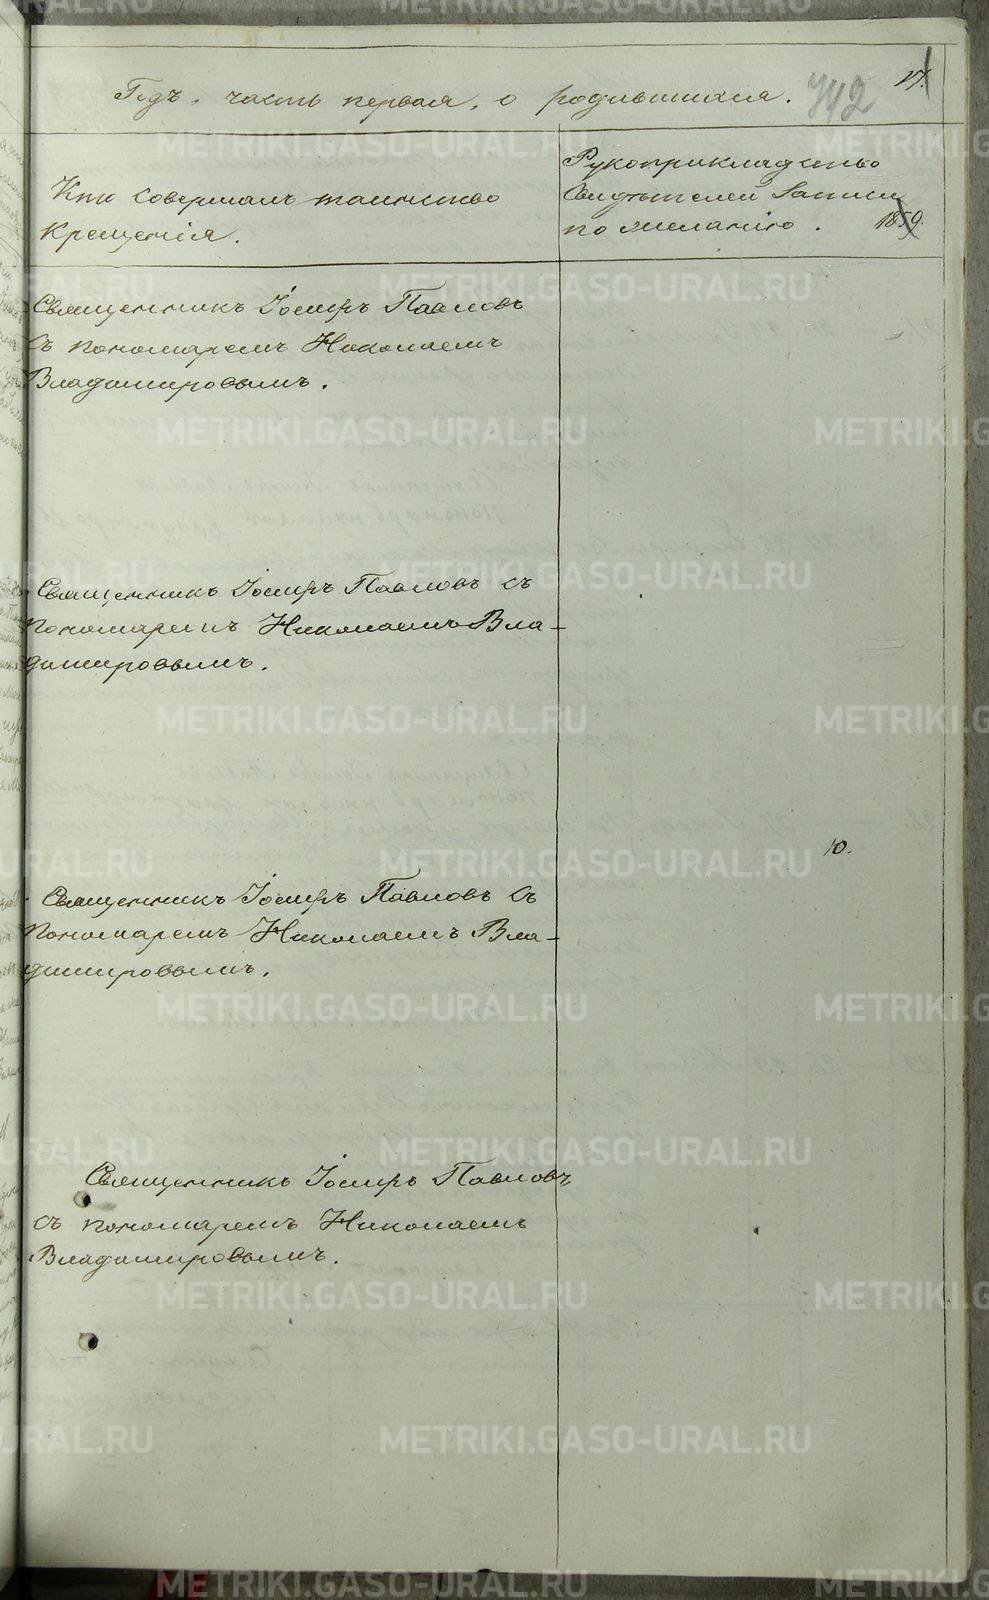 Годъ, часть первая, о родившихся.
742
17.
Кто совершалъ таинство
крещенія.
Рукоприкладство
свидѣтелей записи
по желанію.
1859.
Священникъ Іосифъ Павловъ
съ пономаремъ Николаемъ
Владимировымъ.
Священникъ Іосифъ Павловъ съ
пономаремъ Николаемъ Вла-
димировымъ.
10.
Священникъ Іосифъ Павловъ съ
пономаремъ Николаемъ Вла-
димировымъ.
Священникъ Іосифъ Павловъ
съ пономаремъ Николаемъ
Владимировымъ.
METRIKI.GASO-URAL.RU